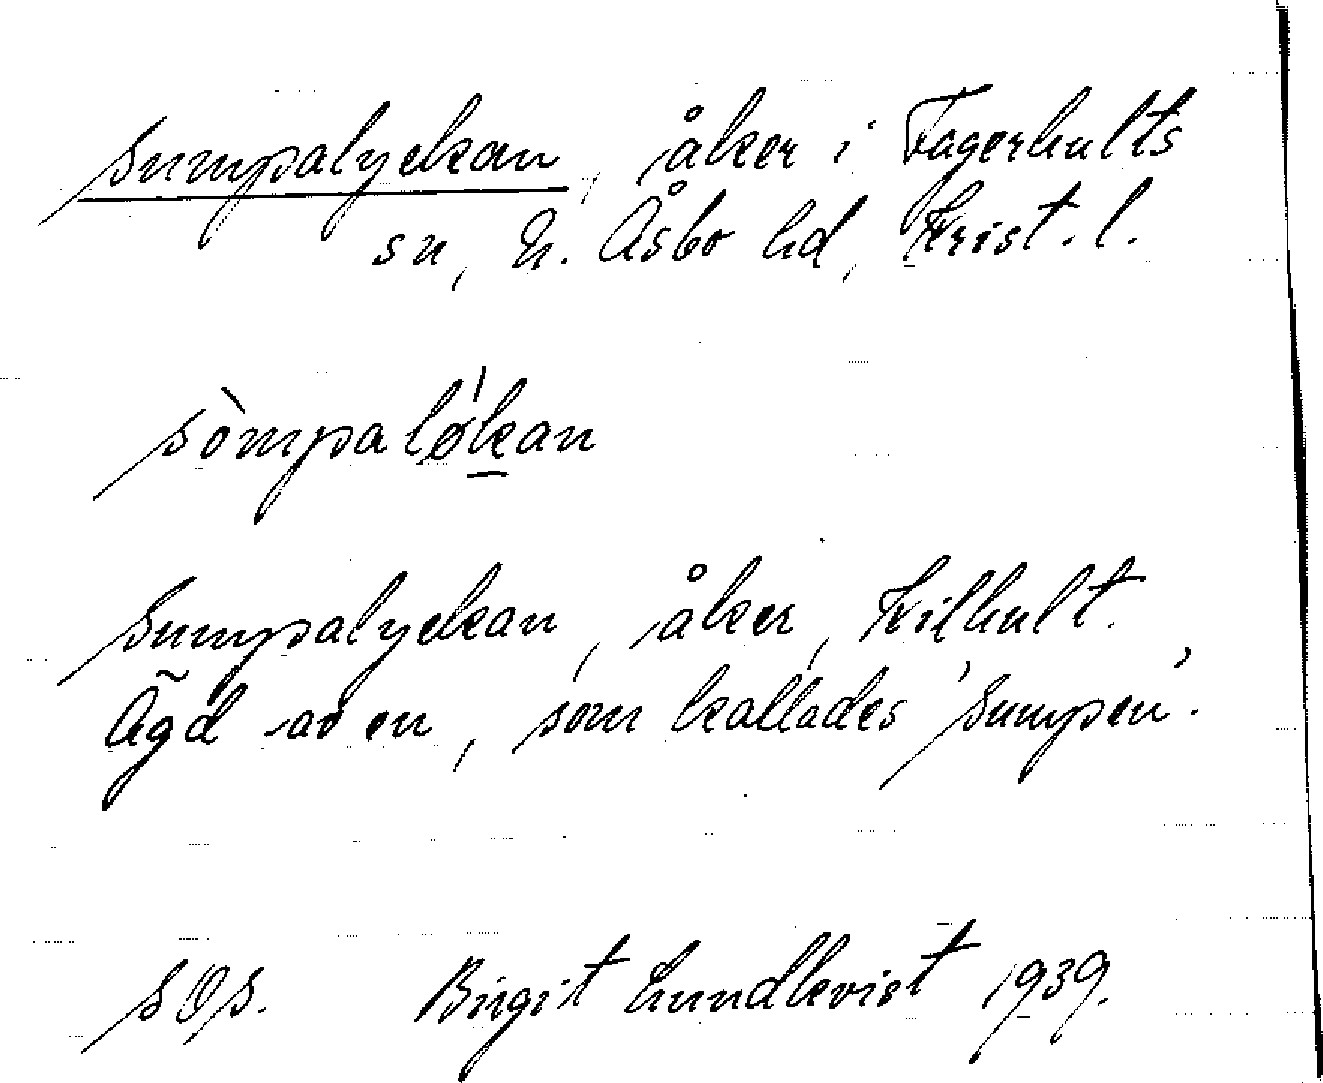 Sumpalyckan, åker i Fagerhults
sn, N. Åsbo hd, Krist. l.
sòmpalø̀kan
Sumpalyckan, åker, Kilhult.
Ägd av en, som kallades 'Sumpen'.
Birgit Lundkvist 1939.